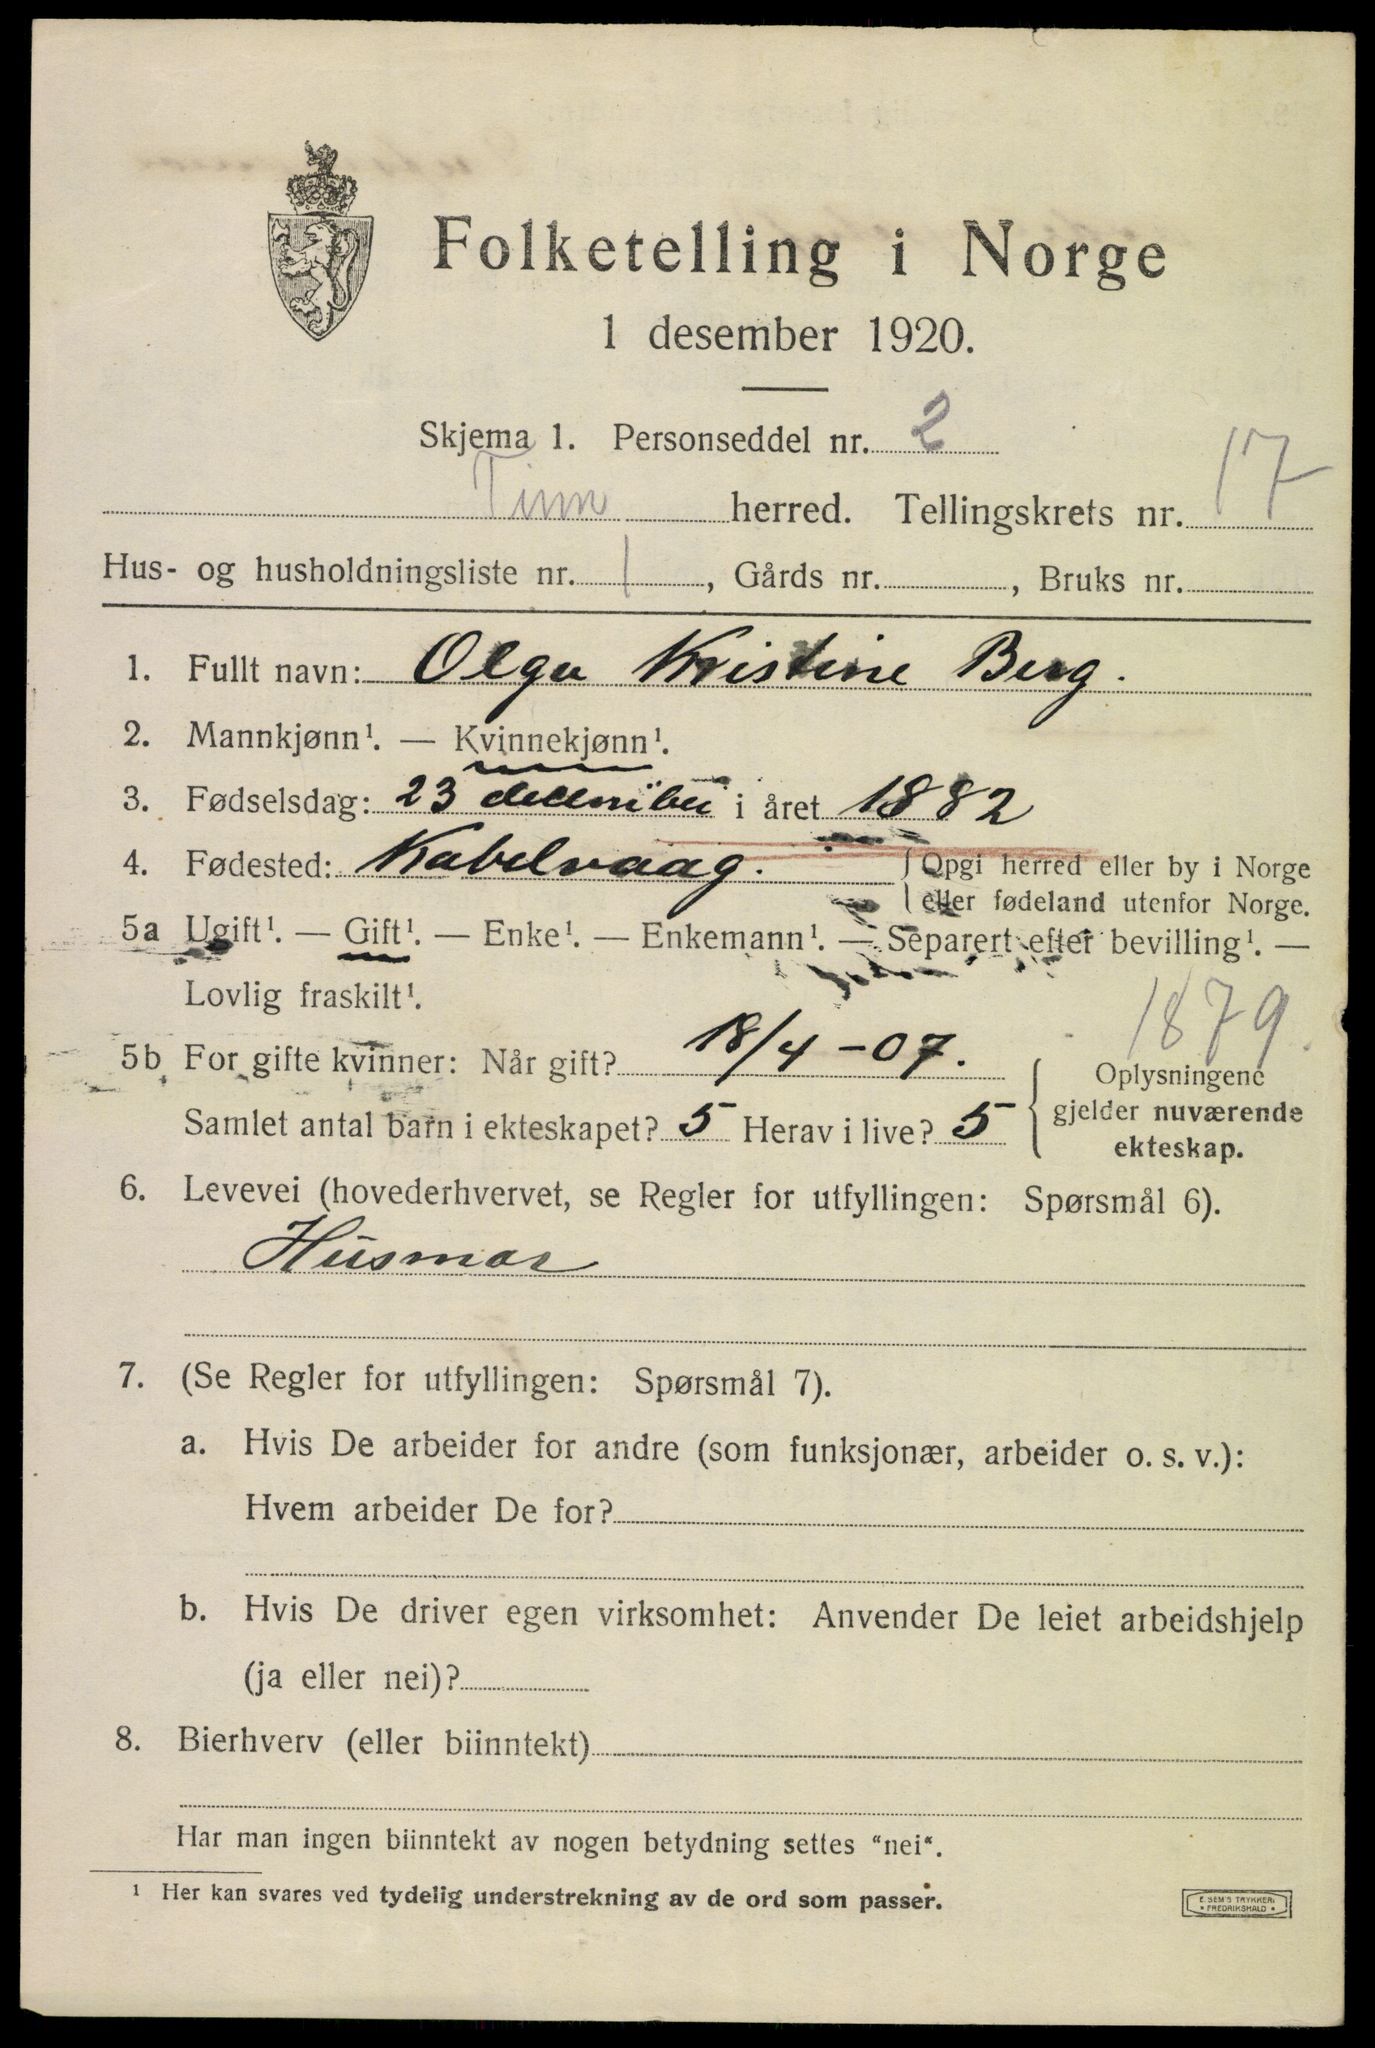 Folketelling i Norge
1 desember 1920.
Skjema 1. Personseddel nr. 2
Tinn herred. Tellingskrets nr. 17
Hus- og husholdningsliste nr. 1, Gårds nr. , Bruks nr.
1. Fullt navn: Olga Kristine Berg.
2. Mannkjønn¹. — Kvinnekjønn¹.
3. Fødselsdag: 23 december i året 1882
4. Fødested: Kabelvaag. Opgi herred eller by i Norge
eller fødeland utenfor Norge.
5a Ugift¹. — Gift¹. — Enke¹. — Enkemann¹. — Separert efter bevilling¹. —
Lovlig fraskilt¹.
1879
5b For gifte kvinner: Når gift? 18/4 - 07. Oplysningene
gjelder nuværende
Samlet antal barn i ekteskapet? 5 Herav i live? 5
ekteskap.
6. Levevei (hovederhvervet, se Regler for utfyllingen: Spørsmål 6).
Husmor
7. (Se Regler for utfyllingen: Spørsmål 7).
a. Hvis De arbeider for andre (som funksjonær, arbeider o. s. v.):
Hvem arbeider De for?
b. Hvis De driver egen virksomhet: Anvender De leiet arbeidshjelp
(ja eller nei)?
8. Bierhverv (eller biinntekt)
Har man ingen biinntekt av nogen betydning settes “nei“.
¹ Her kan svares ved tydelig understrekning av de ord som passer.
E. SEM'S TRYKKERI
* FREDRIKSHALD *